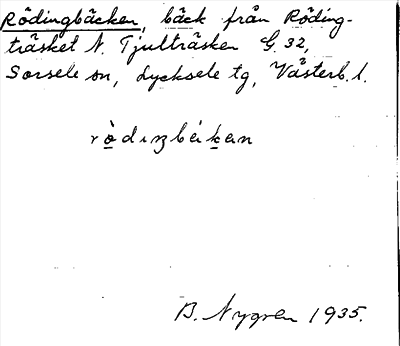 Rödingbäcken, bäck från Röding-
träsket N. Tjulträsken G. 32,
Sorsele sn, Lycksele tg, Västerb. l.
B. Nygren 1935.